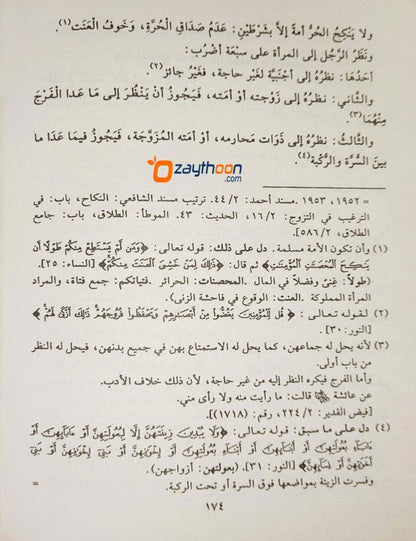 ولا يَنْكِحُ الحُرُّ أمةً إلاَّ بشَرْطَيْنِ: عَدَمُ صَدَاقِ الْحُرَّةِ، وَخَوفُ العَنَت(١).
ونَظَرُ الرَّجُلِ إلى المرأة على سَبْعَة أضْرُب:
أحَدُهَا: نظرُهُ إلى أجْنَبِيَّة لغَيْر حاجة، فغَيْرُ جائز(٢).
والثَّاني: نظرُهُ إلى زَوْجته أو أمَته، فَيَجُوزُ أنْ يَنْظُرَ إلى مَا عَدا الْفَرْجَ
مِنْهُمَا(٣).
والثَّالثُ: نظرُهُ إلى ذَوَات مَحارمه، أوْ أمَته المُزَوَّجَة، فَيَجُوزُ فيمَا عَدَا ما
بينَ السُّرَّة والرُّكبة(٤).
Ozaythoon
.com
= ١٩٥٢، ١٩٥٣. مسند أحمد: ٤٤/٢. ترتيب مسند الشافعي: النكاح، باب: في
الترغيب في التزوج: ١٦/٢، الحديث: ٤٣. الموطأ: الطلاق، باب: جامع
الطلاق، ٥٨٦/٢].
(١) وأن تكون الأمة مسلمة. دل على ذلك: قوله تعالى: ﴿وَمَن لَّمْ يَسْتَطِعْ مِنكُمْ طَوْلًا أَن
يَنكِحَ الْمُحْصَنَٰتِ الْمُؤْمِنَٰتِ﴾ ثم قال: ﴿ذَٰلِكَ لِمَنْ خَشِيَ الْعَنَتَ مِنكُمْ﴾ [النساء: ٢٥].
(طولاً: غنىً وفضلاً في المال. المحصنات: الحرائر. فتياتكم: جمع فتاة، والمراد
المرأة المملوكة. العنت: الوقوع في فاحشة الزنى).
(٢) لقوله تعالى: ﴿قُل لِّلْمُؤْمِنِينَ يَغُضُّوا مِنْ أَبْصَٰرِهِمْ وَيَحْفَظُوا فُرُوجَهُمْ ذَٰلِكَ أَزْكَىٰ لَهُمْ﴾
[النور: ٣٠].
(٣) لأنه يحل له جماعهن، كما يحل له الاستمتاع بهن في جميع بدنهن، فيحل له النظر
من باب أولى.
وأما الفرج فيكره النظر إليه من غير حاجة، لأن ذلك خلاف الأدب.
عن عائشة قالت: ما رأيت منه ولا رأى مني.
[فيض القدير: ٢٢٤/٢، رقم: (١٧١٨)].
(٤) دل على ما سبق: قوله تعالى: ﴿وَلَا يُبْدِينَ زِينَتَهُنَّ إِلَّا لِبُعُولَتِهِنَّ أَوْ ءَابَآئِهِنَّ أَوْ
ءَابَآءِ بُعُولَتِهِنَّ أَوْ أَبْنَآئِهِنَّ أَوْ أَبْنَآءِ بُعُولَتِهِنَّ أَوْ إِخْوَٰنِهِنَّ أَوْ بَنِي إِخْوَٰنِهِنَّ أَوْ بَنِي
أَخَوَٰتِهِنَّ أَوْ نِسَآئِهِنَّ﴾ [النور: ٣١]. (بعولتهن: أزواجهن).
وفسرت الزينة بمواضعها فوق السرة أو تحت الركبة.
=
١٧٤